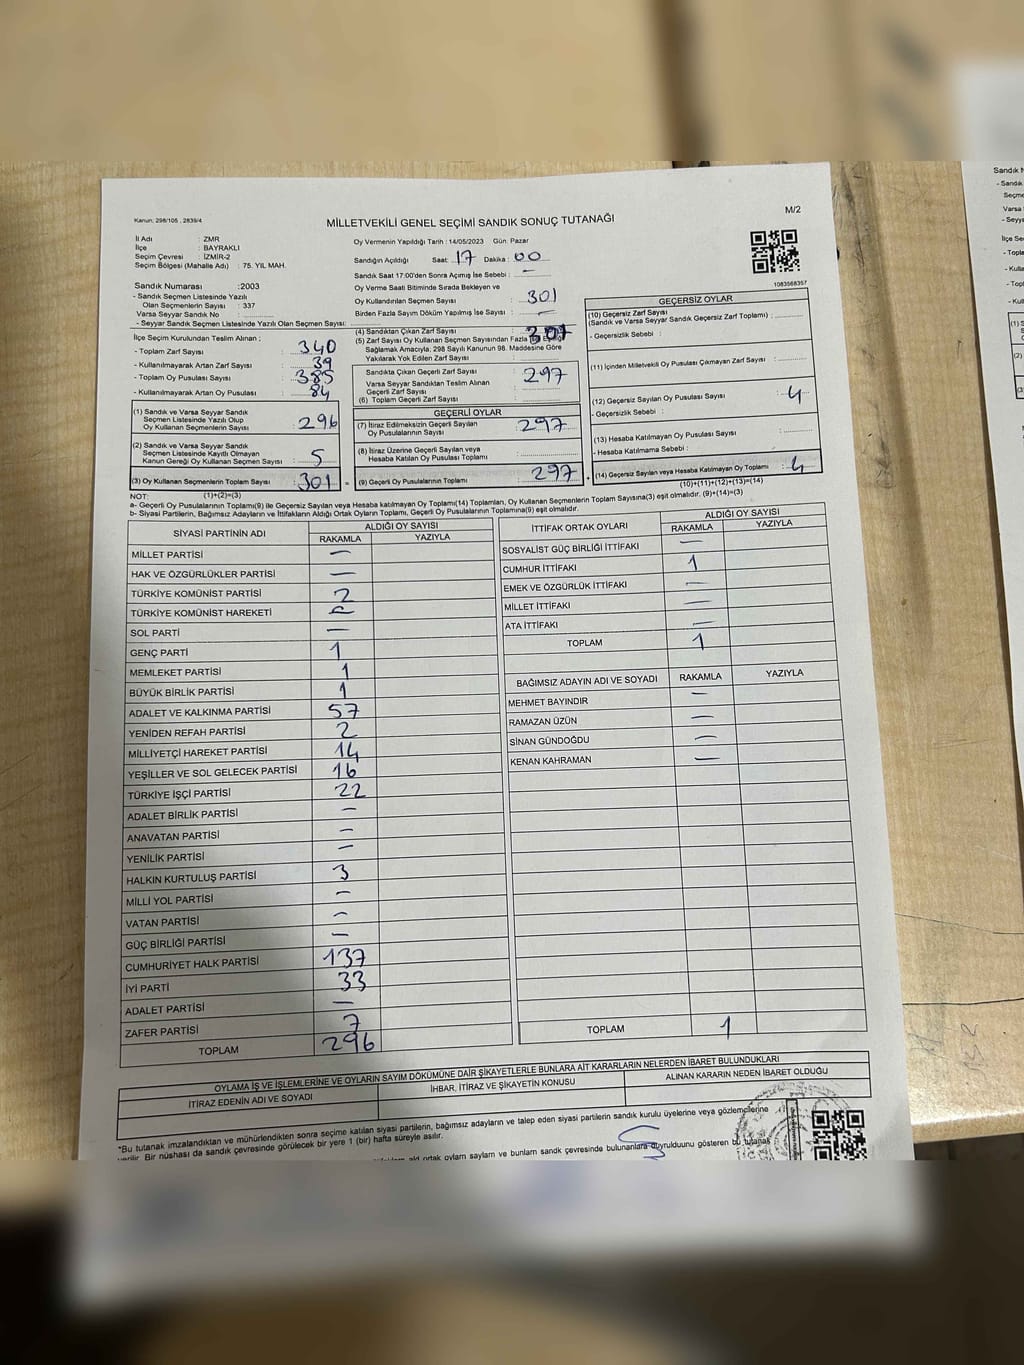 Kanun; 298/105 , 2839/4
MİLLETVEKİLİ GENEL SEÇİMİ SANDIK SONUÇ TUTANAĞI
M/2
İl Adı : ZMR
İlçe : BAYRAKLI
Seçim Çevresi : İZMİR-2
Seçim Bölgesi (Mahalle Adı) : 75. YIL MAH.
Sandık Numarası :2003
- Sandık Seçmen Listesinde Yazılı
Olan Seçmenlerin Sayısı : 337
Varsa Seyyar Sandık No :
- Seyyar Sandık Seçmen Listesinde Yazılı Olan Seçmen Sayısı:
İlçe Seçim Kurulundan Teslim Alınan :
- Toplam Zarf Sayısı : 340
- Kullanılmayarak Artan Zarf Sayısı : 39
- Toplam Oy Pusulası Sayısı : 385
- Kullanılmayarak Artan Oy Pusulası : 84
(1) Sandık ve Varsa Seyyar Sandık
Seçmen Listesinde Yazılı Olup
Oy Kullanan Seçmenlerin Sayısı : 296
(2) Sandık ve Varsa Seyyar Sandık
Seçmen Listesinde Kayıtlı Olmayan
Kanun Gereği Oy Kullanan Seçmen Sayısı : 5
(3) Oy Kullanan Seçmenlerin Toplam Sayısı : 301
(1)+(2)=(3)
Oy Vermenin Yapıldığı Tarih : 14/05/2023 Gün: Pazar
Sandığın Açıldığı Saat: 17 Dakika: 00
Sandık Saat 17:00'den Sonra Açılmış İse Sebebi : —
Oy Verme Saati Bitiminde Sırada Bekleyen ve
Oy Kullandırılan Seçmen Sayısı : 301
Birden Fazla Sayım Döküm Yapılmış İse Sayısı : —
(4) Sandıktan Çıkan Zarf Sayısı :
(5) Zarf Sayısı Oy Kullanan Seçmen Sayısından Fazla
Sağlamak Amacıyla; 298 Sayılı Kanunun 98. Maddesine Göre
Yakılarak Yok Edilen Zarf Sayısı :
Sandıkta Çıkan Geçerli Zarf Sayısı : 297
Varsa Seyyar Sandıktan Teslim Alınan
Geçerli Zarf Sayısı :
(6) Toplam Geçerli Zarf Sayısı :
GEÇERLİ OYLAR
(7) İtiraz Edilmeksizin Geçerli Sayılan
Oy Pusulalarının Sayısı : 297
(8) İtiraz Üzerine Geçerli Sayılan veya
Hesaba Katılan Oy Pusulası Toplamı :
(9) Geçerli Oy Pusulalarının Toplamı : 297
1083568357
GEÇERSİZ OYLAR
(10) Geçersiz Zarf Sayısı
(Sandık ve Varsa Seyyar Sandık Geçersiz Zarf Toplamı) :
- Geçersizlik Sebebi :
(11) İçinden Milletvekili Oy Pusulası Çıkmayan Zarf Sayısı :
(12) Geçersiz Sayılan Oy Pusulası Sayısı : 4
- Geçersizlik Sebebi :
(13) Hesaba Katılmayan Oy Pusulası Sayısı :
- Hesaba Katılmama Sebebi :
(14) Geçersiz Sayılan veya Hesaba Katılmayan Oy Toplamı : 4
(10)+(11)+(12)+(13)=(14)
NOT:
a- Geçerli Oy Pusulalarının Toplamı(9) ile Geçersiz Sayılan veya Hesaba Katılmayan Oy Toplamı(14) Toplamları, Oy Kullanan Seçmenlerin Toplam Sayısına(3) eşit olmalıdır. (9)+(14)=(3)
b- Siyasi Partilerin, Bağımsız Adayların ve İttifakların Aldığı Ortak Oyların Toplamı, Geçerli Oy Pusulalarının Toplamına(9) eşit olmalıdır.
SİYASİ PARTİNİN ADI ALDIĞI OY SAYISI
RAKAMLA YAZIYLA
MİLLET PARTİSİ —
HAK VE ÖZGÜRLÜKLER PARTİSİ —
TÜRKİYE KOMÜNİST PARTİSİ 2
TÜRKİYE KOMÜNİST HAREKETİ
SOL PARTİ —
GENÇ PARTİ 1
MEMLEKET PARTİSİ 1
BÜYÜK BİRLİK PARTİSİ 1
ADALET VE KALKINMA PARTİSİ 57
YENİDEN REFAH PARTİSİ 2
MİLLİYETÇİ HAREKET PARTİSİ 14
YEŞİLLER VE SOL GELECEK PARTİSİ 16
TÜRKİYE İŞÇİ PARTİSİ 22
ADALET BİRLİK PARTİSİ —
ANAVATAN PARTİSİ —
YENİLİK PARTİSİ —
HALKIN KURTULUŞ PARTİSİ 3
MİLLİ YOL PARTİSİ —
VATAN PARTİSİ —
GÜÇ BİRLİĞİ PARTİSİ —
CUMHURİYET HALK PARTİSİ 137
İYİ PARTİ 33
ADALET PARTİSİ —
ZAFER PARTİSİ 7
TOPLAM 296
İTTİFAK ORTAK OYLARI ALDIĞI OY SAYISI
RAKAMLA YAZIYLA
SOSYALİST GÜÇ BİRLİĞİ İTTİFAKI —
CUMHUR İTTİFAKI 1
EMEK VE ÖZGÜRLÜK İTTİFAKI —
MİLLET İTTİFAKI —
ATA İTTİFAKI —
TOPLAM 1
BAĞIMSIZ ADAYIN ADI VE SOYADI RAKAMLA YAZIYLA
MEHMET BAYINDIR —
RAMAZAN ÜZÜN —
SİNAN GÜNDOĞDU —
KENAN KAHRAMAN —
TOPLAM 1
OYLAMA İŞ VE İŞLEMLERİNE VE OYLARIN SAYIM DÖKÜMÜNE DAİR ŞİKAYETLERLE BUNLARA AİT KARARLARIN NELERDEN İBARET BULUNDUKLARI
İTİRAZ EDENİN ADI VE SOYADI İHBAR, İTİRAZ VE ŞİKAYETİN KONUSU ALINAN KARARIN NEDEN İBARET OLDUĞU
*Bu tutanak imzalandıktan ve mühürlendikten sonra seçime katılan siyasi partilerin, bağımsız adayların ve talep eden siyasi partilerin sandık kurulu üyelerine veya gözlemcilerine
verilir. Bir nüshası da sandık çevresinde görülecek bir yere 1 (bir) hafta süreyle asılır.